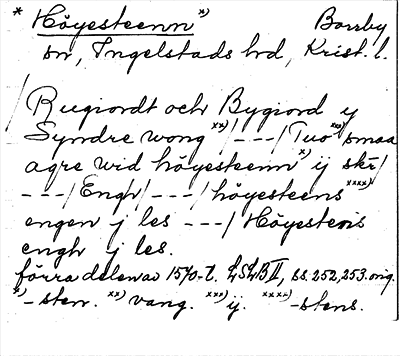 * Höyesteenn x) Borrby
sn, Ingelstads hd, Krist. l.
/Rugiordt och Bygiord y
Syndre wong xx)/---/Tuo xxx) smaa
agre wid höyesteenn x) ij skr/
---/Engh/---/höyesteens xxxx)
engen j les ---/Höyestens
engh j les.
förra delen av 1570-t. LSLB II, ss. 252, 253. orig.
x) -sten. xx) vang. xxx) ij. xxxx) -stens.